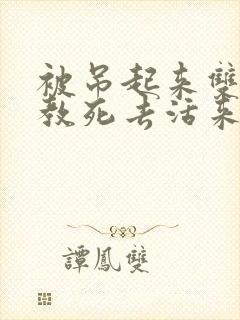 被吊起来雙
教死去活来
譚鳳雙